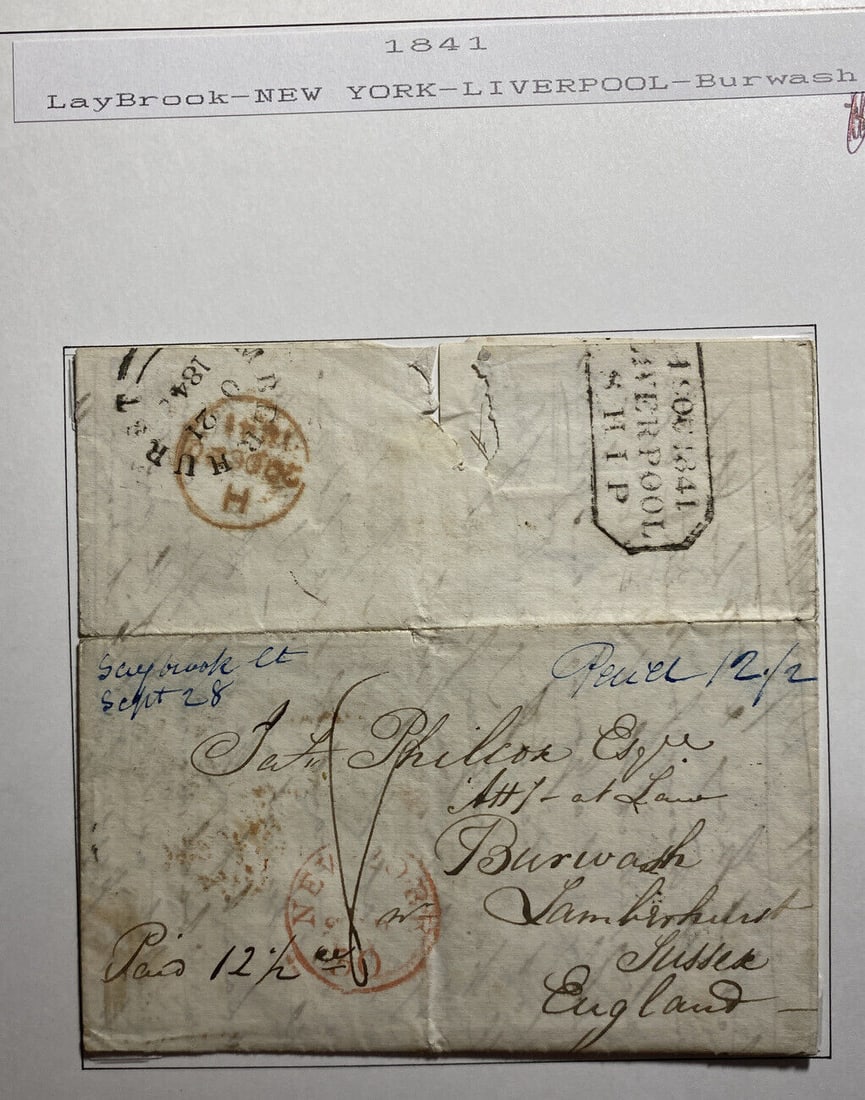 1841
LayBrook-NEW YORK-LIVERPOOL-Burwash
HURST
OC 21
184
H
20 OC 20
1841
19 OC 1841
LIVERPOOL
SHIP
Saybrook Ct
Sept 28
Paid 12 1/2
Philcox Esqre
Atty - at Law
Burwash
Lamberhurst
Sussex
England
NEW YORK
Paid 12 1/2